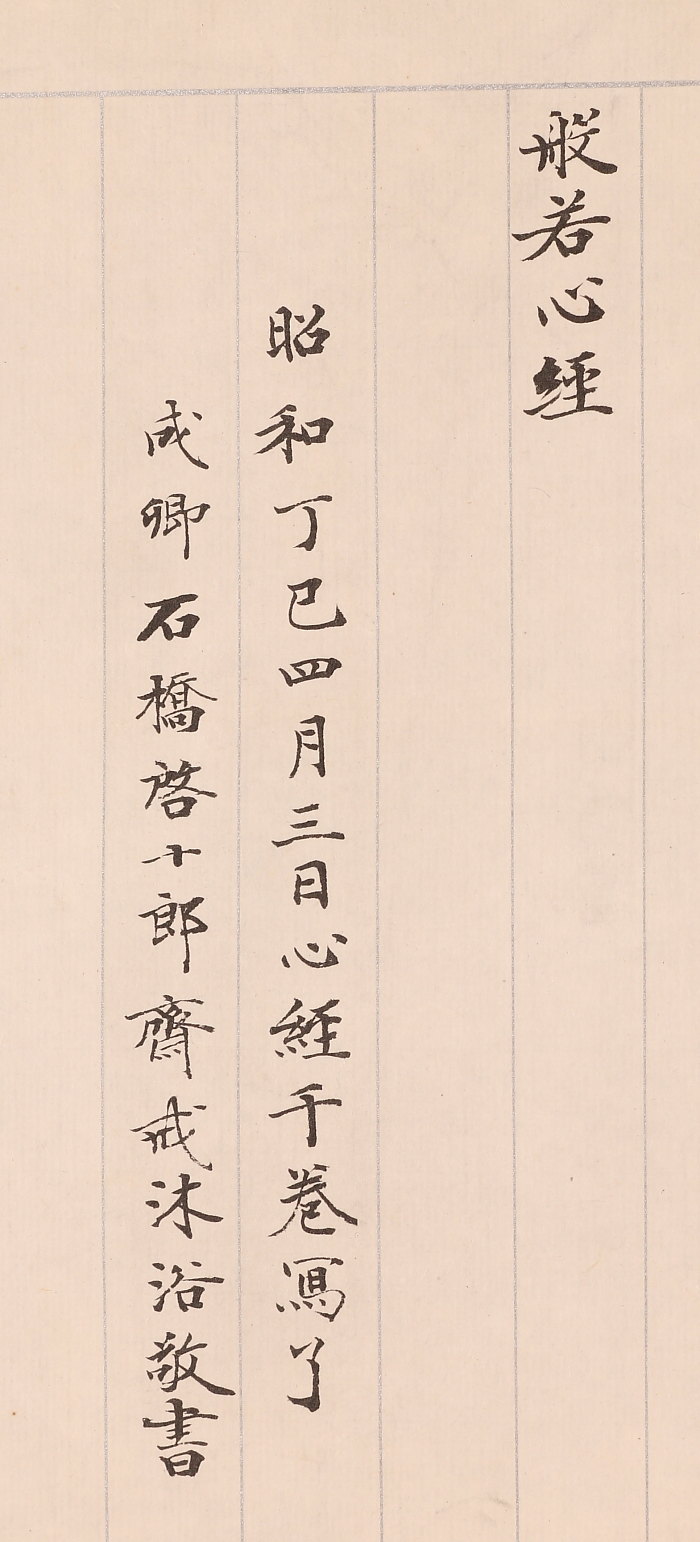 般若心經
昭和丁巳四月三日心經千巻寫了
成卿石橋啓十郎齋戒沐浴敬書